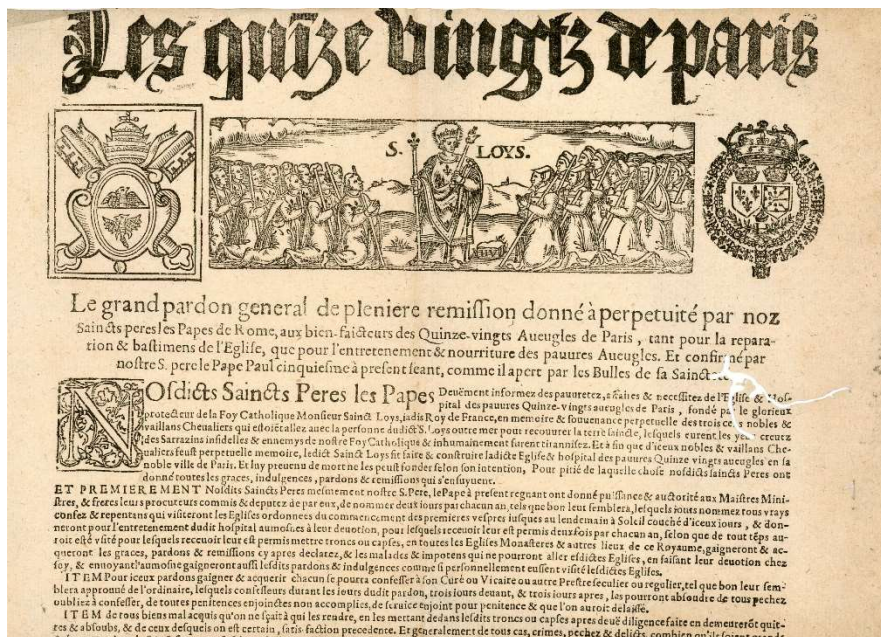 Les quĩze vingtz de paris
S. LOYS.
Le grand pardon general de pleniere remission donné à perpetuité par noz
Saincts peres les Papes de Rome, aux bien-faicteurs des Quinze-vingts Aueugles de Paris, tant pour la repara-
tion & bastimens de l'Eglise, que pour l'entretenement & nourriture des pauures Aueugles. Et confirmé par
nostre S. pere le Pape Paul cinquiesme à present seant, comme il apert par les Bulles de sa
NOsdicts Saincts Peres les Papes Deuëment informez des pauuretez, affaires & necessitez de l'Eglise & Hos-
pital des pauures Quinze-vingts aueugles de Paris, fondé par le glorieux
protecteur de la Foy Catholique Monsieur Sainct Loys, iadis Roy de France, en memoire & souuenance perpetuelle des trois cens nobles &
vaillans Cheualiers qui estoiẽt allez auec la personne dudict S. Loys outre mer pour recouurer la terre saincte, lesquels eurent les yeux creuez
des Sarrazins infidelles & ennemys de nostre Foy Catholique & inhumainement furent tirannisez. Et à fin que d'iceux nobles & vaillans Che-
ualiers feust perpetuelle memoire, ledict Sainct Loys fit faite & construire ladicte Eglise & hospital des pauures Quinze vingts aueugles en sa
noble ville de Paris. Et luy preuenu de mort ne les peult fonder selon son intention, Pour pitié de laquelle chose nosdicts saincts Peres ont
donné toutes les graces, indulgences, pardons & remissions qui s'ensuyuent.
ET PREMIEREMENT Nosdits Saincts Peres mesmement nostre S. Pere, le Pape à present regnant ont donné puissance & auctorité aux Maistres Mini-
stres, & freres leurs procureurs commis & deputez de par eux, de nommer deux iours par chacun an, tels que bon leur semblera, lesquels iours nommez tous vrays
confez & repentans qui visiteront les Eglises ordonnees du commencement des premieres vespres iusques au lendemain à Soleil couché d'iceux iours, & don-
neront pour l'entretenement dudit hospital aumosnes à leur deuotion, pour lesquels receuoir leur est permis deux fois par chacun an, selon que de tout tẽps au-
roit esté vsité pour lesquels receuoir leur est permis mettre troncs ou capses, en toutes les Eglises Monasteres & autres lieux de ce Royaume, gaigneront & ac-
queront les graces, pardons & remissions cy apres declarez, & les malades & impotens qui ne pourront aller esdictes Eglises, en faisant leur deuotion chez
soy, & enuoyant l'aumosne gaigneront aussi lesdits pardons & indulgences comme si personnellement eussent visité lesdictes Eglises.
ITEM Pour iceux pardons gaigner & acquerir chacun se pourra confesser à son Curé ou Vicaire ou autre Prestre seculier ou regulier, tel que bon leur sem-
blera approuué de l'ordinaire, lesquels confesseurs durant les iours dudit pardon, trois iours deuant, & trois iours apres, les pourront absoudre de tous pechez
oubliez à confesser, de toutes penitences enjoinctes non accomplies, de seruice enjoint pour penitence & que l'on auroit delaissé.
ITEM de tous biens mal acquis qu'on ne sçait à qui les rendre, en les mettant dedans lesdits troncs ou capses apres deuë diligence faite en demeurerõt quit-
tes & absoubs, & de ceux desquels on est certain, satisfaction precedente. Et generalement de tous cas, crimes, pechez & delicts, combien qu'ils soient